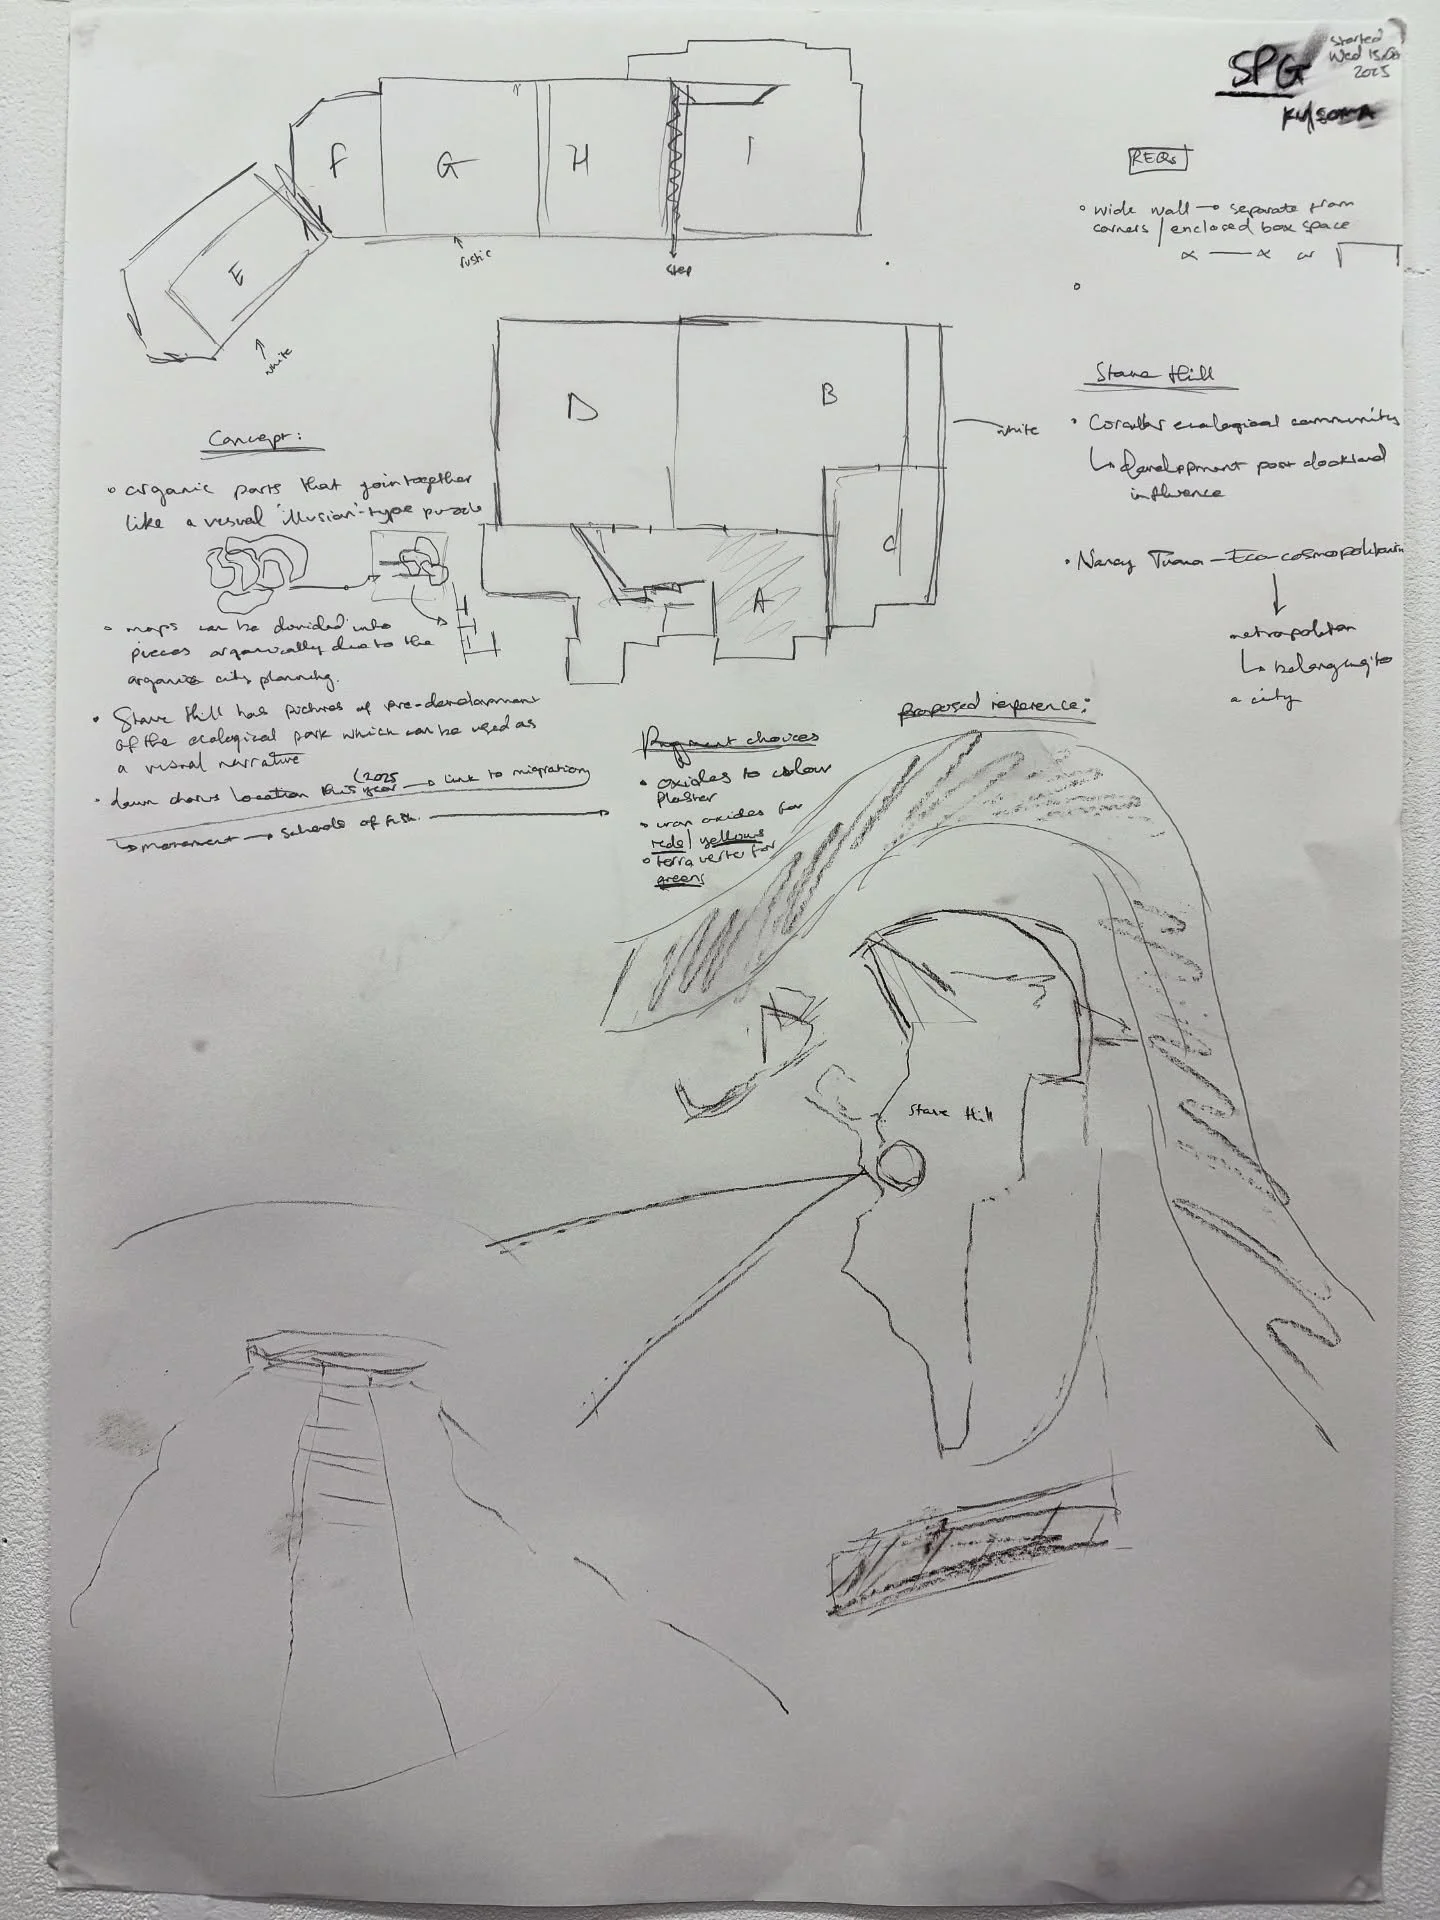 SPG
Started
Wed 15
2025
Kulsoma
F
G
H
I
E
rustic
step
white
REQs
• wide wall → separate from
corners / enclosed box space
x — x or
Stave Hill
• Circular ecological community
↳ Development post dockland
influence
• Nancy Tuana – Eco-cosmopolitanism
metropolitan
↳ belonging to
a city
D
B
white
C
A
Concept:
• organic parts that join together
like a visual 'illusion'-type puzzle
• maps can be divided into
pieces organically due to the
organic city planning.
• Stave Hill has pictures of pre-development
of the ecological park which can be used as
a visual narrative
• dawn chorus location this year (2025 → link to migration)
↳ movement → schools of fish.
Pigment choices
• oxides to colour
plaster
• iron oxides for
reds / yellows
• terra verte for
greens
Proposed reference:
Stave Hill